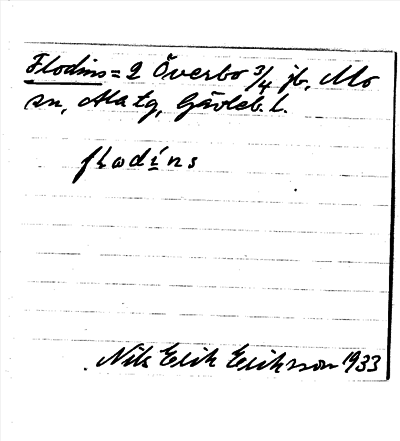 Flodins = 2 Överbo 3/4 jb, Mo
sn, Ala tg, Gävleb. l.
flodíns
Nils Erik Eriksson 1933